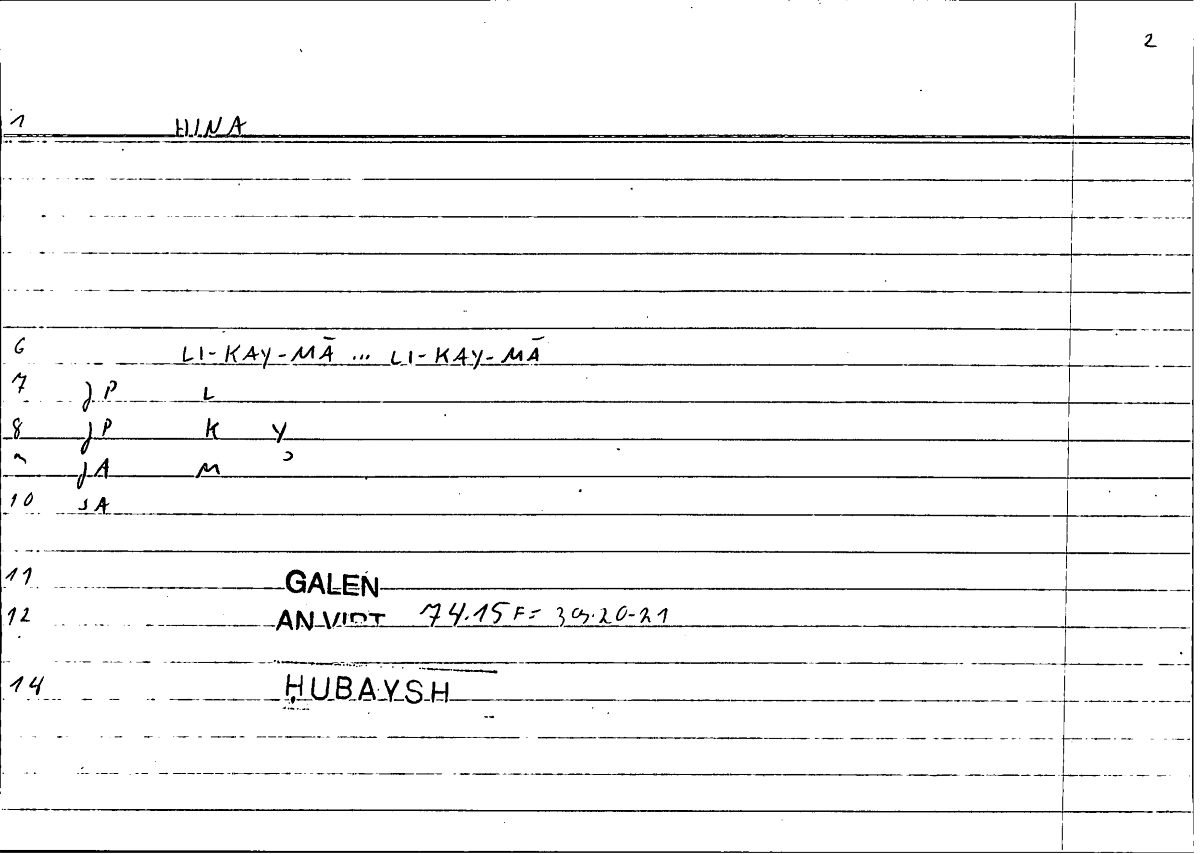 2
1 HINA
6 LI-KAY-MĀ ... LI-KAY-MĀ
7 JP L
8 JP K Y
9 JA M ɔ
10 JA
11 GALEN
12 AN VIRT 74.15 F= 39.20-21
14 ḤUBAYSH